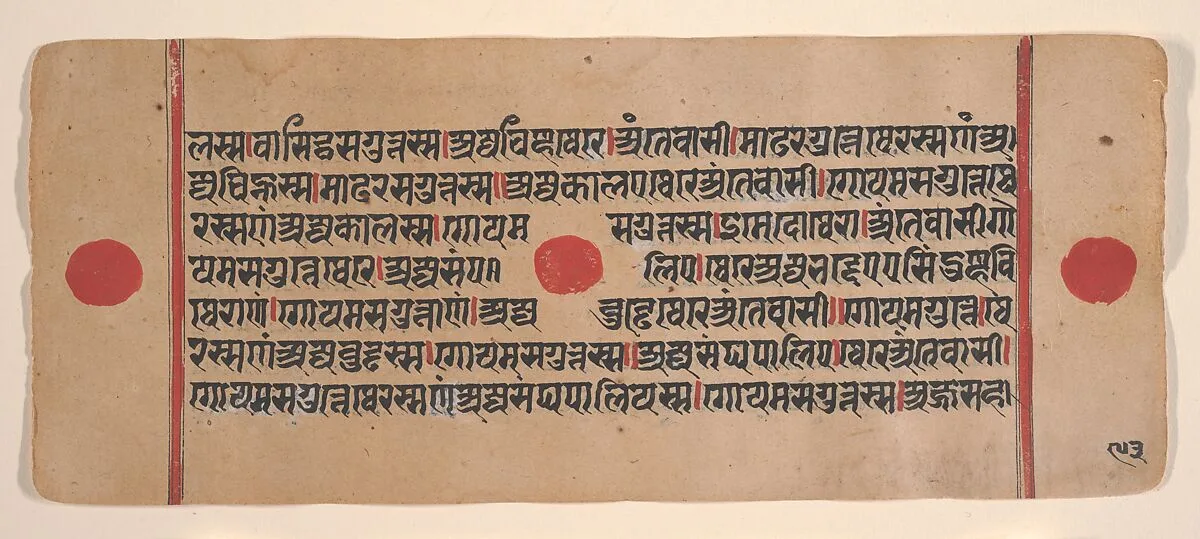 लस्स।वासिट्ठसगुत्तस्स।अज्जविण्हूथेरे।अंतेवासी।माढरगुत्ते।थेरस्सणंअ
ज्जविण्हुस्स।माढरसगुत्तस्स।अज्जकालएथेरेअंतेवासी।गोयमसगुत्तेथे
रस्सणंअज्जकालस्स।गोयमसगुत्तस्स।इमेदोथेरा।अंतेवासीगो
यमसगुत्तेथेरे।अज्जसंपलिएथेरेअज्जभद्देएएसिंदुण्हवि
थेराणं।गोयमसगुत्ताणं।अज्जवुड्ढेथेरेअंतेवासी॥गोयमगुत्तेथे
रस्सणंअज्जवुड्ढस्स।गोयमसगुत्तस्स।अज्जसंघपालिएथेरेअंतेवासी।
गोयमसगुत्तेथेरस्सणंअज्जसंघपालियस्स।गोयमसगुत्तस्स।